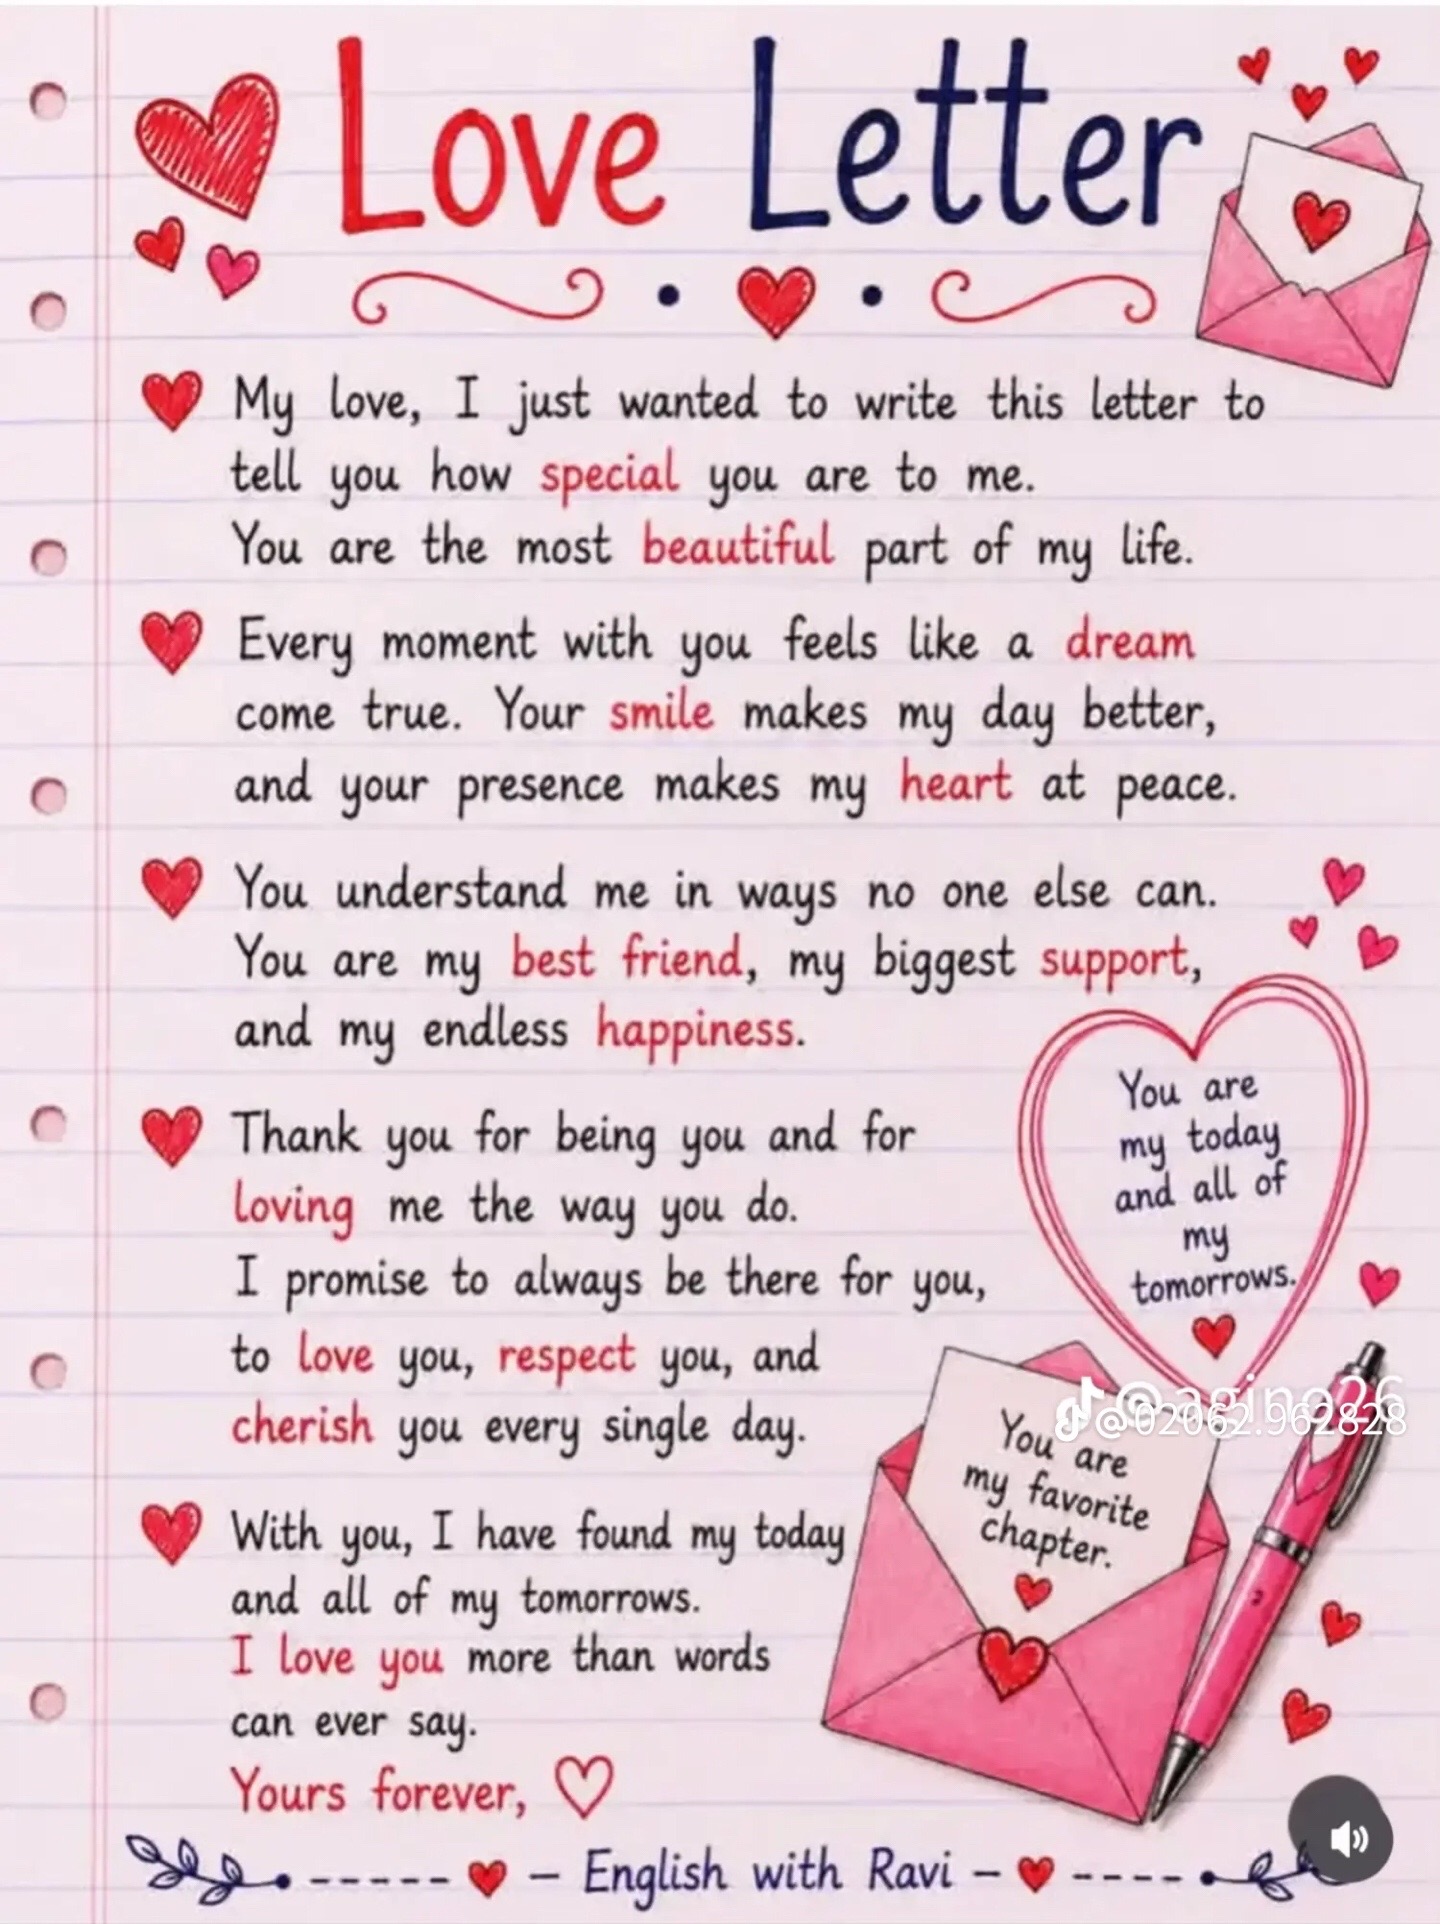 Love Letter
My love, I just wanted to write this letter to
tell you how special you are to me.
You are the most beautiful part of my life.
Every moment with you feels like a dream
come true. Your smile makes my day better,
and your presence makes my heart at peace.
You understand me in ways no one else can.
You are my best friend, my biggest support,
and my endless happiness.
Thank you for being you and for
loving me the way you do.
I promise to always be there for you,
to love you, respect you, and
cherish you every single day.
You are
my today
and all of
my
tomorrows.
@agino26
@02062.962828
You are
my favorite
chapter.
With you, I have found my today
and all of my tomorrows.
I love you more than words
can ever say.
Yours forever,
– English with Ravi –